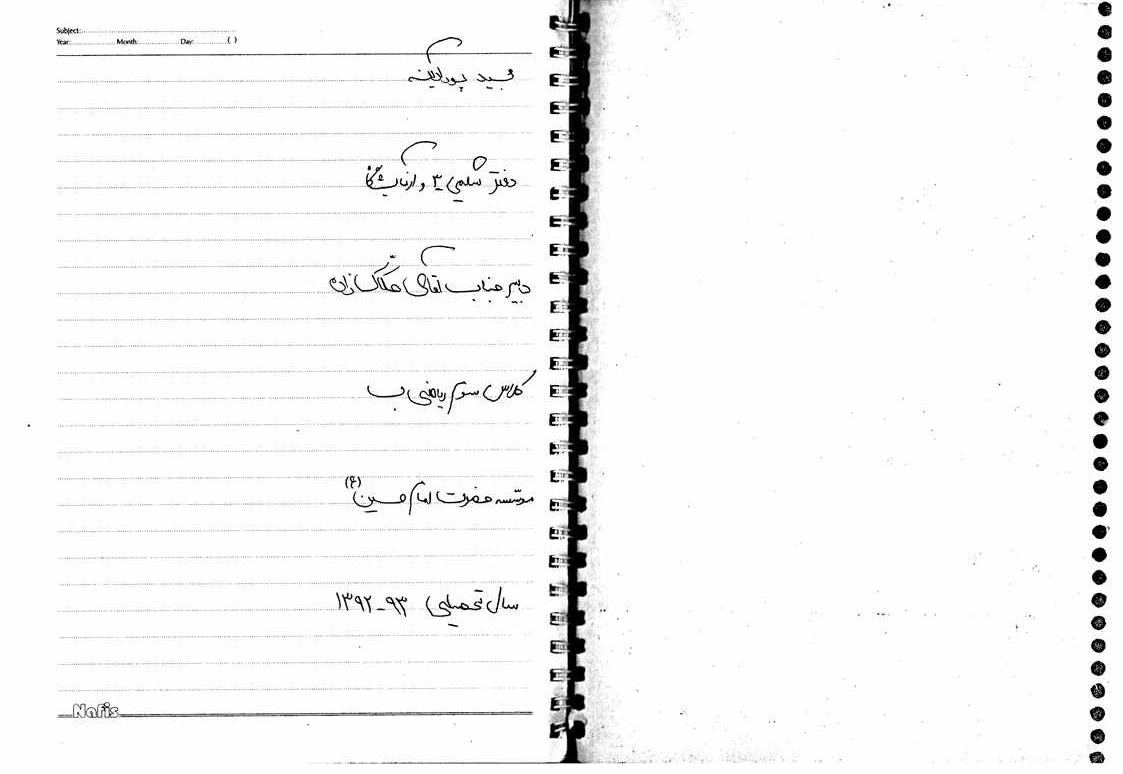 Subject:
Year: Month: Day: ( )
مجید پورآئینه
دفتر شیمی ۳ و آزمایشگاه
دبیر جناب آقای حکاک زاده
کلاس سوم ریاضی ب
موسّسه حضرت امام حسین (ع)
سال تحصیلی ۹۳-۱۳۹۲
Nafis